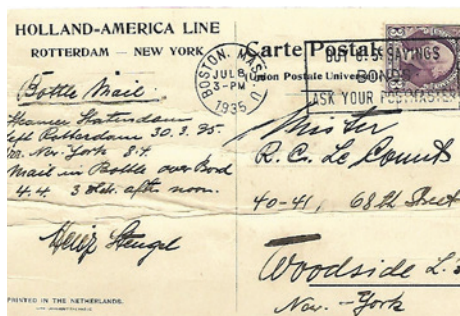 HOLLAND-AMERICA LINE
ROTTERDAM — NEW YORK
Bottle Mail.
Steamer Statendam
left Rotterdam 30.3.35.
arr. New-York 8.4.
Mail in Bottle over Bord
4.4. 3 after noon.
Heinz Stengel
PRINTED IN THE NETHERLANDS.
Carte Postale
(Union Postale Univers
BOSTON, MASS. U
JUL 8
3-PM
1935
BUY U.S. SAVINGS
BONDS
ASK YOUR POSTMASTER
3
Mister
R. Cs. Le Count
40-41, 68th Street
Woodside L.
New-York